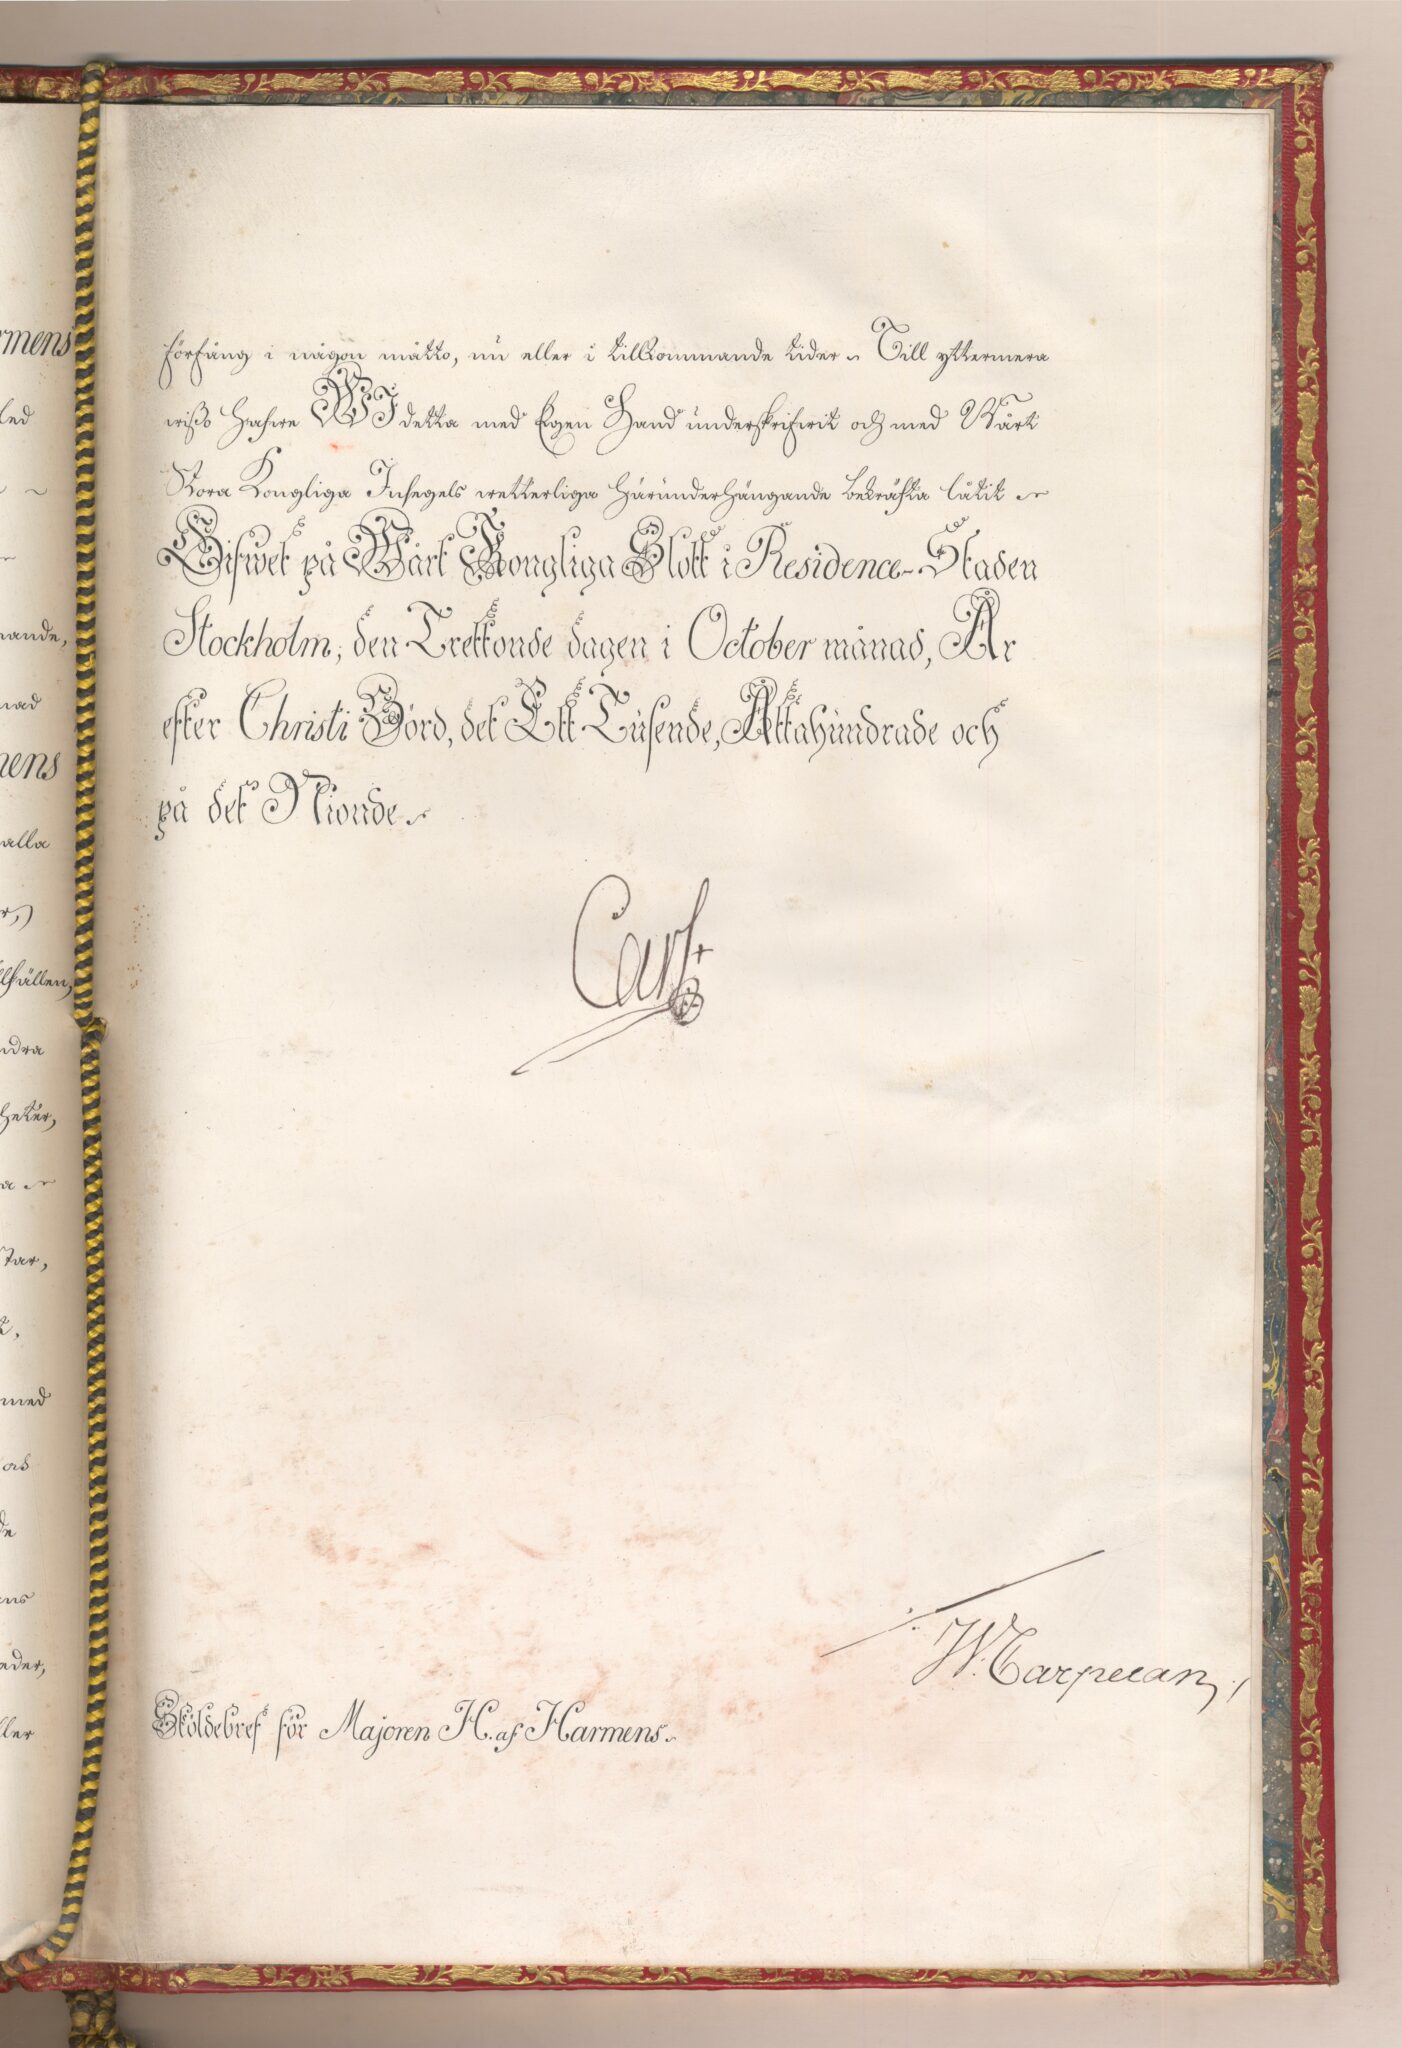 rmens
led
nande,
nad
nens
alla
r,)
llfällen,
ndra
heter,
a
star,
t,
med
as
de
ens
eder,
ller
förfång i någon måtto, nu eller i tillkommande tider. Till yttermera
wißo hafwe WI detta med Egen Hand underskrifwit och med Wårt
Stora Kongliga Insegels wetterliga härunderhängande bekräfta låtit
Gifwet på Wårt Kongliga Slott i Residence-Staden
Stockholm, den Trettonde dagen i October månad, År
efter Christi Börd, det Ett Tusende, Åttahundrade och
på det Nionde.
Carl
W. Carpelan
Sköldebref för Majoren H. af Harmens.